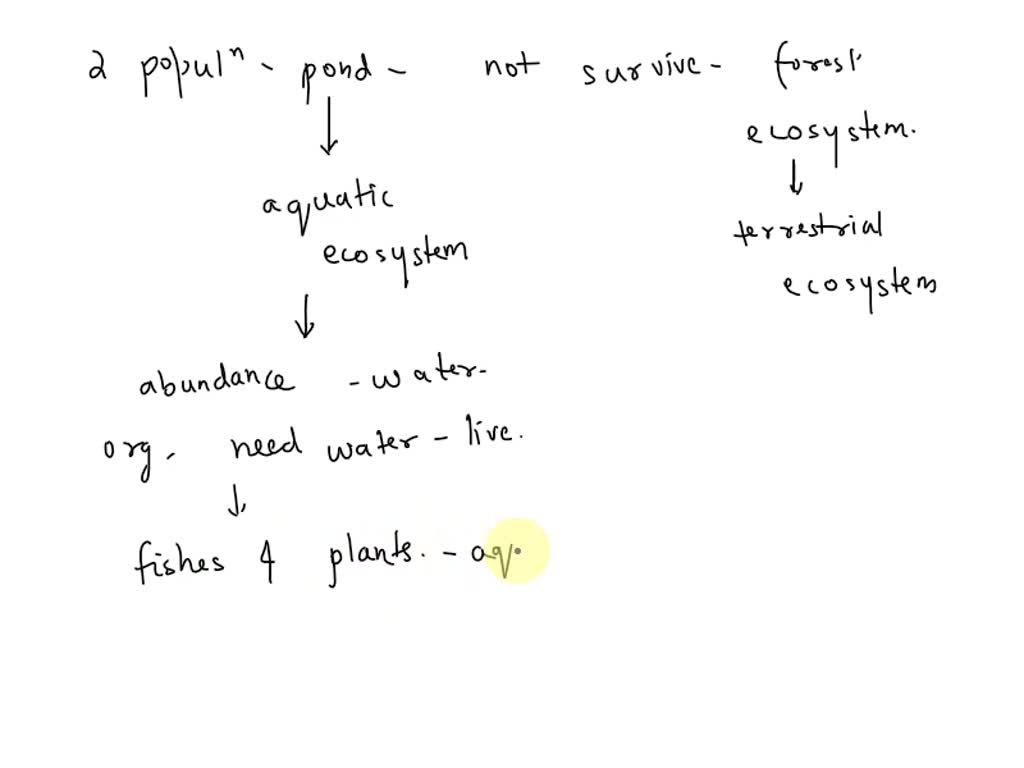 2 populⁿ - pond - not survive - forest
ecosystem.
↓
↓
aquatic
terrestrial
ecosystem
ecosystem
↓
abundance - water.
org. need water - live.
↓
fishes & plants. - aq